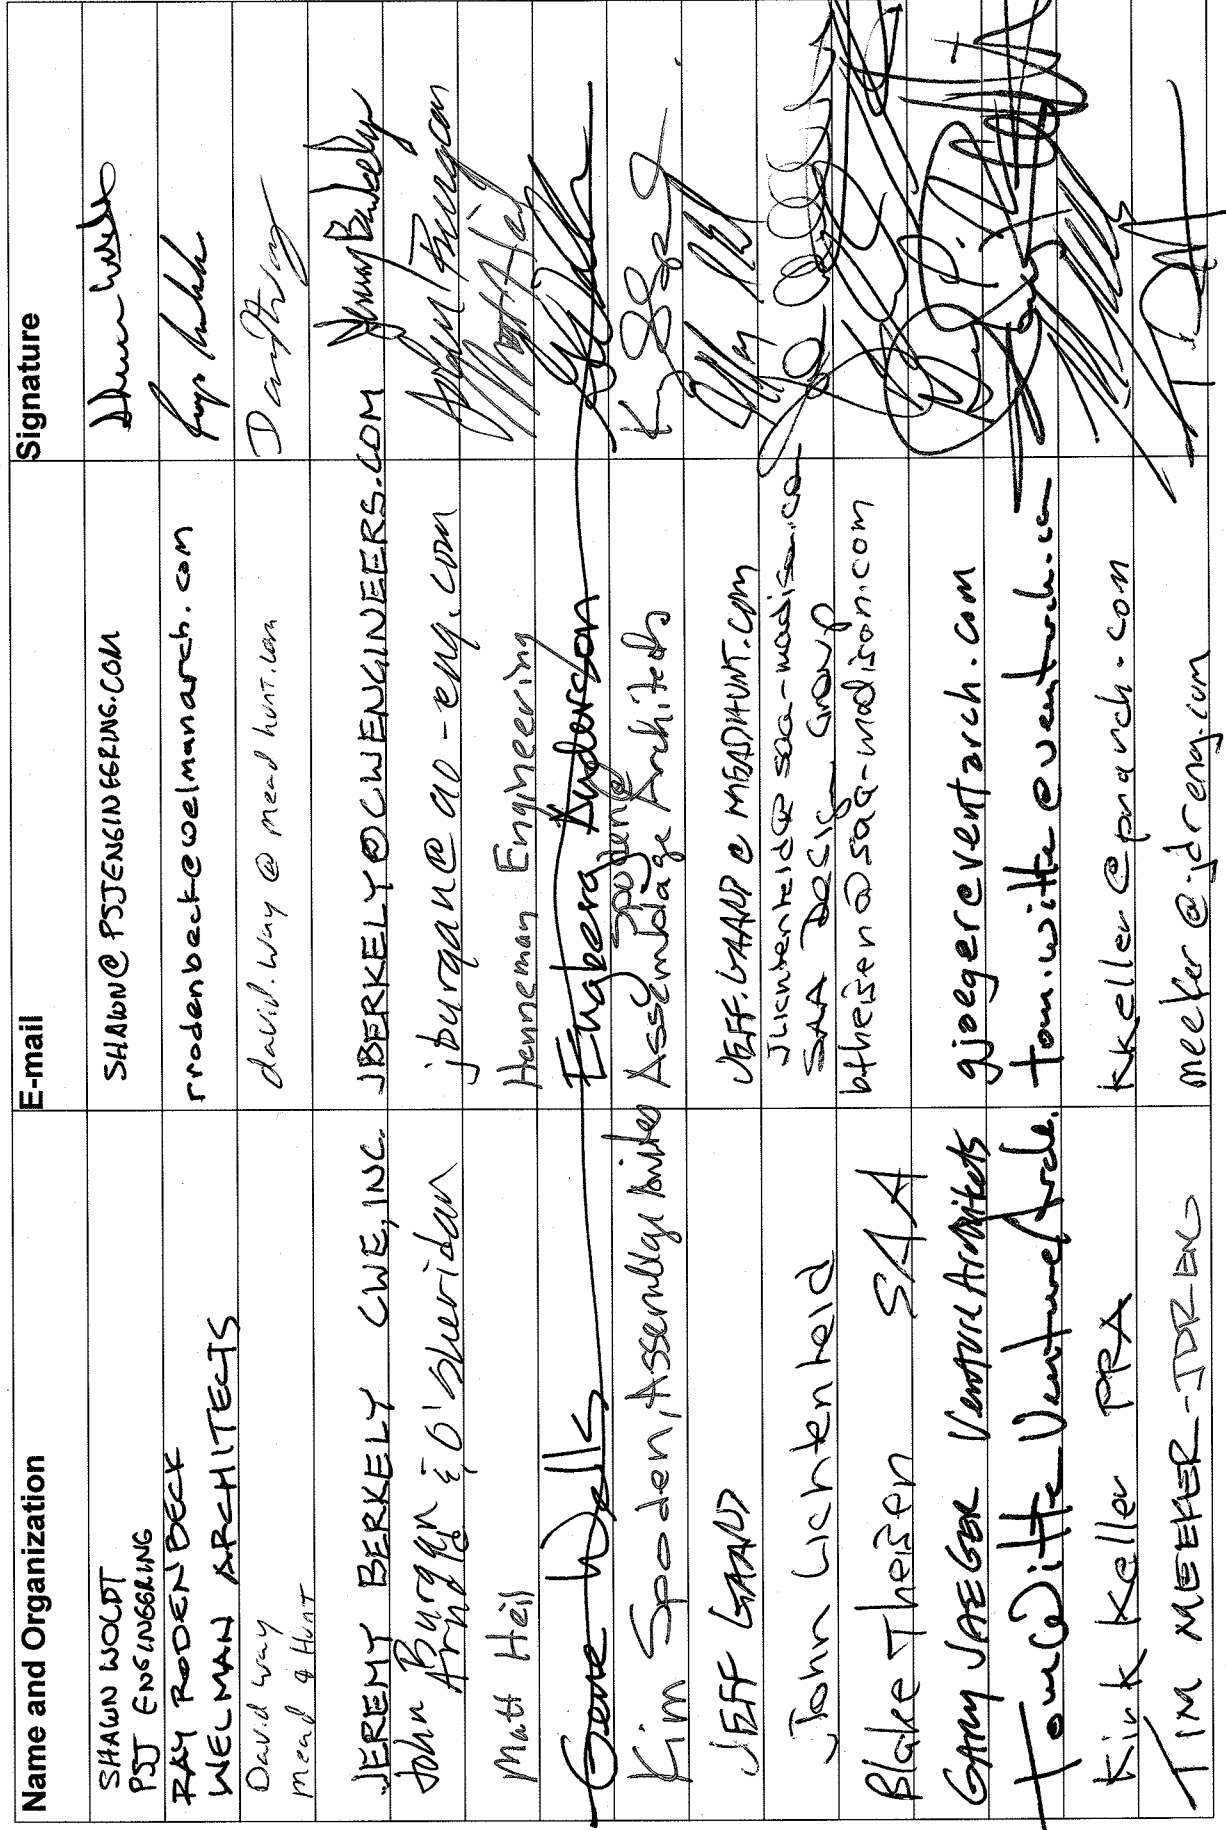 Name and Organization	E-mail	Signature
SHAWN WOLDT
PSJ ENGINEERING	SHAWN@PSJENGINEERING.COM
RAY RODENBECK
WELMAN ARCHITECTS	rrodenbeck@welmanarch.com
David Way
Mead & Hunt	david.way@meadhunt.com
JEREMY BERKELY CWE, INC.	JBERKELY@CWENGINEERS.COM
John Burgan
Arnold & O'Sheridan	jburgan@ao-eng.com
Matt Heil	Henneman Engineering
Gene Wells	Engberg Anderson
Kim Spoden, Assemblage	Spoden@
Assemblage Architects
JEFF GAARD	JEFF.GAARD@MEADHUNT.COM
John Lichtenheld	JLichtenheld@saa-madison.co
SAA Design Group
Blake Theisen SAA	btheisen@saa-madison.com
GARY JAEGER Venture Architects	gjaeger@ventarch.com
Tom Witte Venture Arch.	tom.witte@ventarch.com
Kirk Keller PRA	kkeller@prarch.com
TIM MEEKER-JDR ENG	meeker@jdreng.com